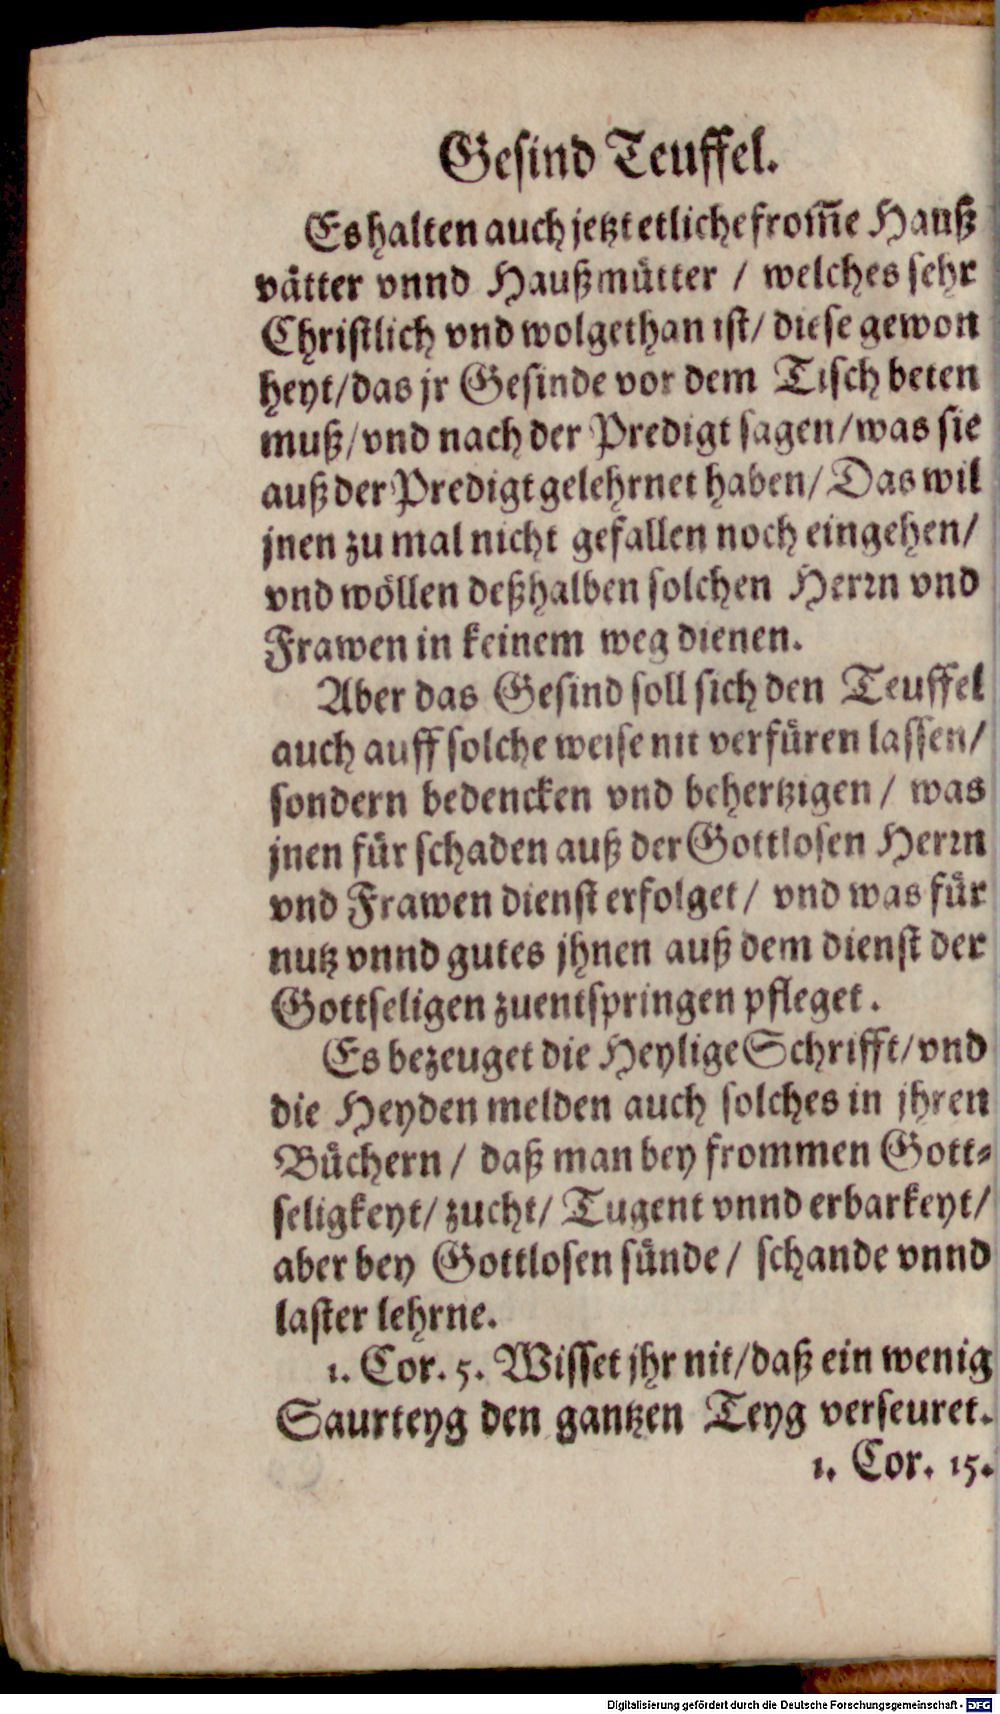 Gesind Teuffel.
Es halten auch jetzt etliche from̃e Hauß
vätter vnnd Haußmütter / welches sehr
Christlich vnd wolgethan ist / diese gewon
heyt / das jr Gesinde vor dem Tisch beten
muß / vnd nach der Predigt sagen / was sie
auß der Predigt gelehrnet haben / Das wil
jnen zu mal nicht gefallen noch eingehen /
vnd wöllen deßhalben solchen Herrn vnd
Frawen in keinem weg dienen.
Aber das Gesind soll sich den Teuffel
auch auff solche weise nit verfüren lassen /
sondern bedencken vnd behertzigen / was
jnen für schaden auß der Gottlosen Herrn
vnd Frawen dienst erfolget / vnd was für
nutz vnnd gutes jhnen auß dem dienst der
Gottseligen zuentspringen pfleget.
Es bezeuget die Heylige Schrifft / vnd
die Heyden melden auch solches in jhren
Büchern / daß man bey frommen Gott-
seligkeyt / zucht / Tugent vnnd erbarkeyt /
aber bey Gottlosen sünde / schande vnnd
laster lehrne.
1. Cor. 5. Wisset jhr nit / daß ein wenig
Saurteyg den gantzen Teyg verseuret.
1. Cor. 15.
Digitalisierung gefördert durch die Deutsche Forschungsgemeinschaft - DFG